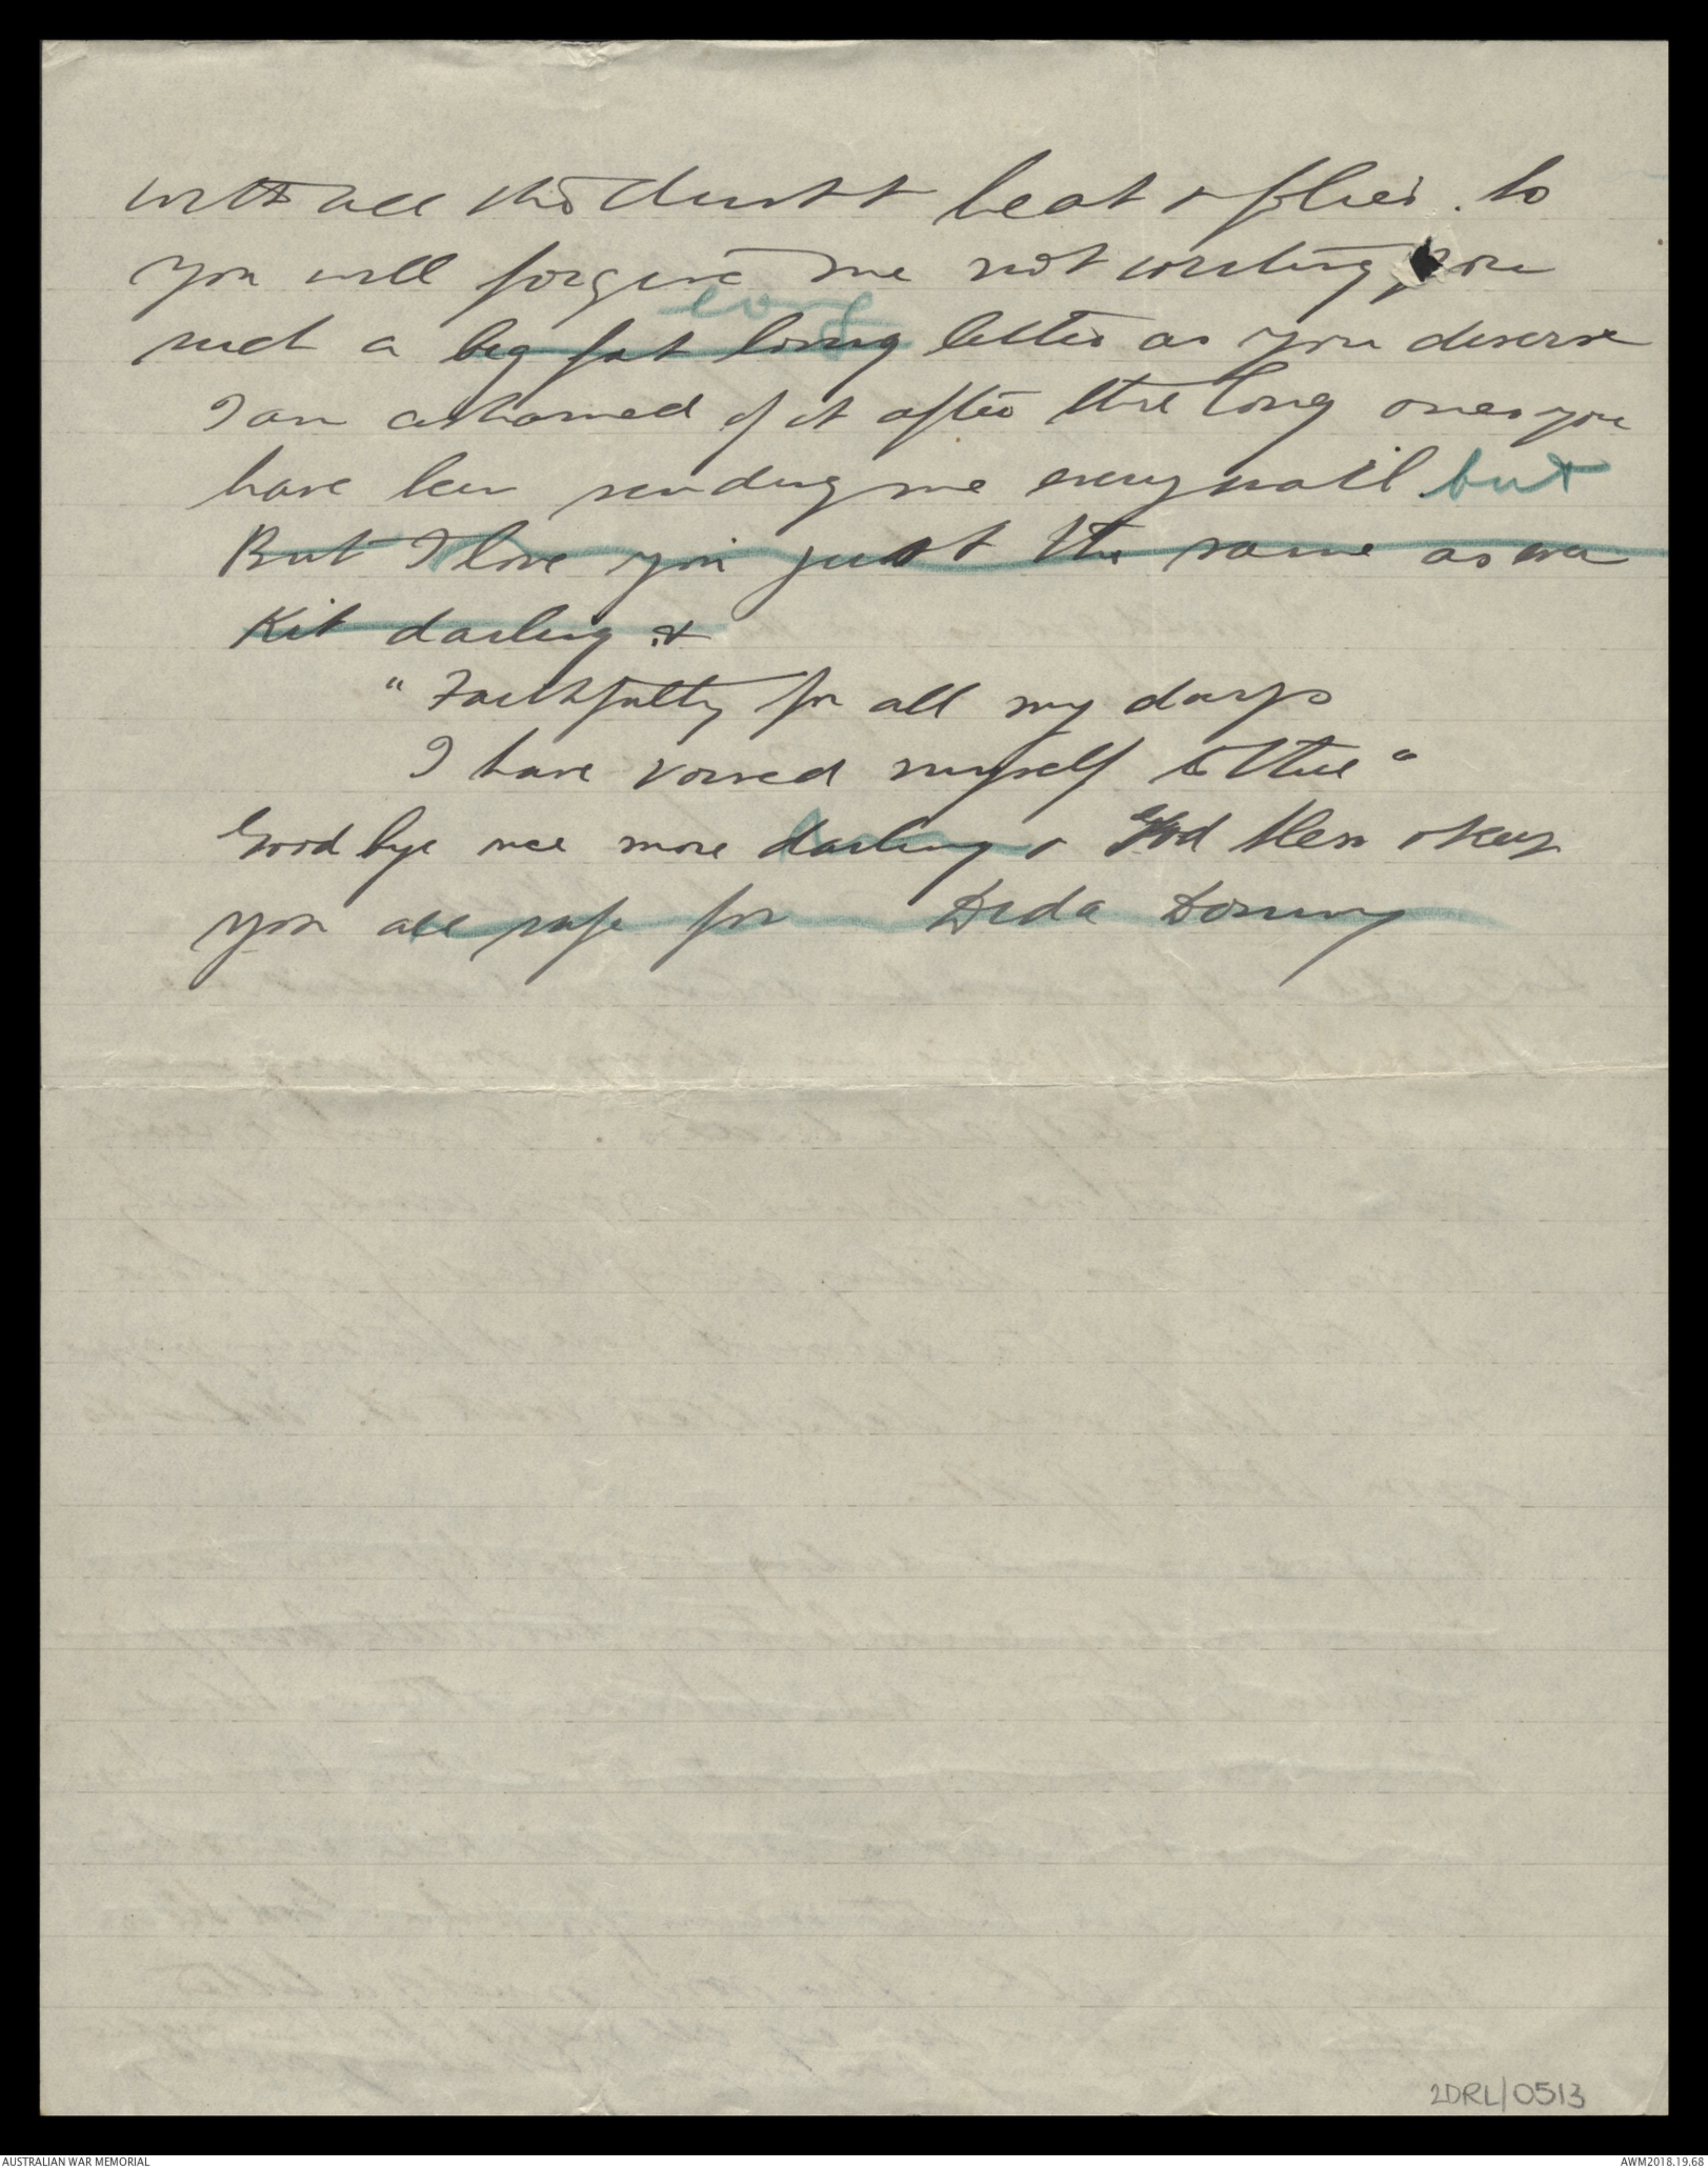 with all this dust & heat & flies. So
you will forgive me not writing you
long
such a big fat loving letter as you deserve
I am ashamed of it after the long ones you
have been sending me every mail but
But I love you just the same as ever
Kit darling &
"Faithfully for all my days
I have vowed myself to thee"
Good bye once more darling & God bless & keep
you all safe for Dida
2DRL/0513
AUSTRALIAN WAR MEMORIAL
AWM2018.19.68